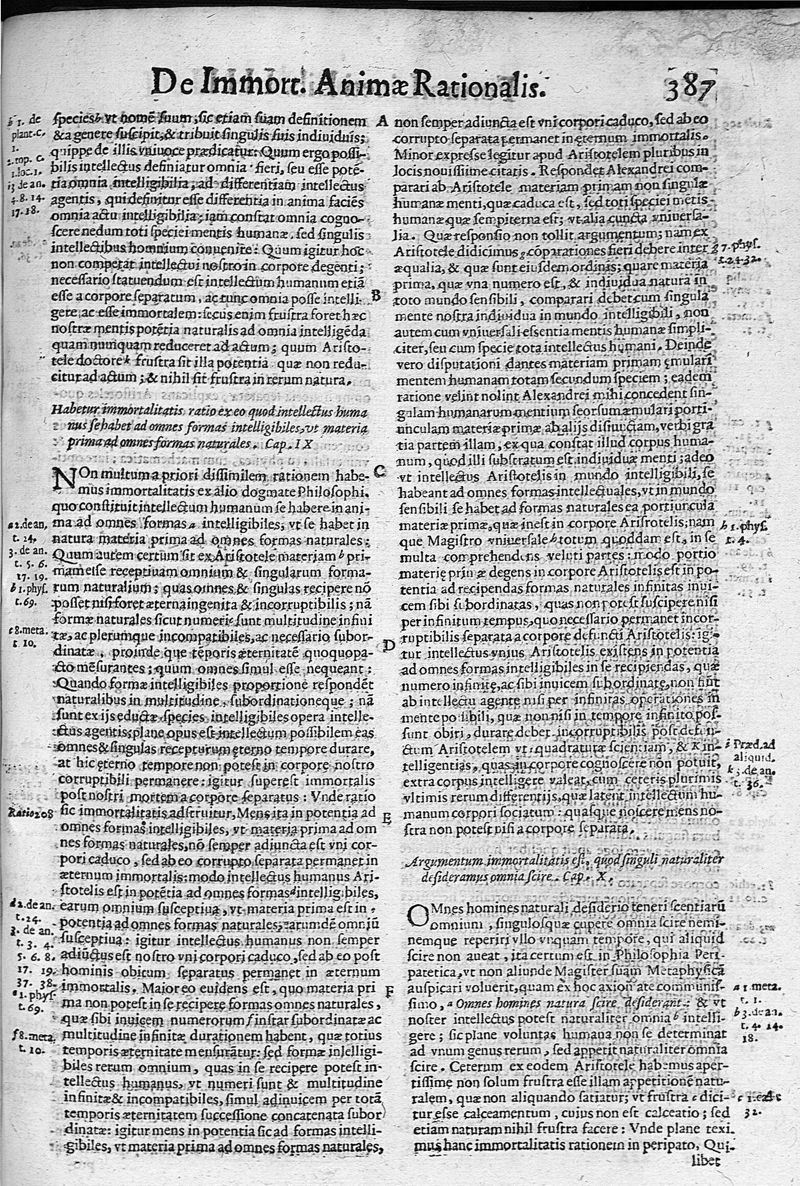 De Immort. Animæ Rationalis. 387
species b vt homẽ suum, sic etiam suam definitionem
& a genere suscipit, & tribuit singulis suis indiuiduis;
quippe de illis vniuoce prædicatur: Quum ergo possi-
bilis intellectus definiatur omnia fieri, seu esse potẽ-
tia omnia intelligibilia, ad differentiam intellectus
agentis, qui definitur esse differẽtia in anima faciẽs
omnia actu intelligibilia; iam constat omnia cogno-
scere nedum toti speciei mentis humanæ, sed singulis
intellectibus hominum conuenire: Quum igitur hoc
non competat intellectui nostro in corpore degenti;
necessario statuendum est intellectum humanum etiã
esse a corpore separatum, ac tunc omnia posse intelli
gere, ac esse immortalem: secus enim frustra foret hæc
nostræ mentis potẽtia naturalis ad omnia intelligẽda
quam nunquam reduceret ad actum; quum Aristo-
tele doctore k frustra sit illa potentia quæ non redu-
citur ad actum; & nihil sit frustra in rerum natura.
Habetur immortalitatis ratio ex eo quod intellectus huma
nus se habet ad omnes formas intelligibiles, vt materia
prima ad omnes formas naturales. Cap. IX
NOn multum a priori dissimilem rationem habe-
mus immortalitatis ex alio dogmate Philosophi,
quo constituit intellectum humanum se habere in ani-
ma ad omnes formas a intelligibiles; vt se habet in
natura materia prima ad omnes formas naturales;
Quum autem certum sit ex Aristotele materiam b pri-
mam esse receptiuam omnium & singularum forma-
rum naturalium; quas omnes & singulas recipere nõ
posset nisi foret æterna ingenita & incorruptibilis; nã
formæ naturales sicut numeri c sunt multitudine infini
tæ, ac plerumque incompatibiles, ac necessario subor-
dinatæ, proinde que tẽporis æternitatẽ quoquopa-
cto mẽsurantes; quum omnes simul esse nequeant:
Quando formæ intelligibiles proportione respondẽt
naturalibus in multitudine, subordinationeque; nã
sunt ex ijs eductæ species intelligibiles opera intelle-
ctus agentis; plane opus est intellectum possibilem eas
omnes & singulas recepturum ęterno tempore durare,
at hic ęterno tempore non potest in corpore nostro
corruptibili permanere: igitur superest immortalis
post nostri mortem a corpore separatus: Vnde ratio
sic immortalitatis adstruitur, Mens ita in potentia ad
omnes formas intelligibiles, vt materia prima ad om
nes formas naturales, nõ semper adiuncta est vni cor-
pori caduco, sed ab eo corrupto separata permanet in
æternum immortalis: modo intellectus humanus Ari-
stotelis est in potẽtia ad omnes formas d intelligibiles,
earum omnium susceptiua, vt materia prima est in
potentia ad omnes formas naturales, earumdẽ omniũ
susceptiua: igitur intellectus humanus non semper
adiũctus est nostro vni corpori caduco, sed ab eo post
hominis obitum separatus permanet in æternum
immortalis. Maior eo euidens est, quo materia pri
ma non potest in se recipere formas omnes naturales,
quæ sibi inuicem numerorum f instar subordinatæ ac
multitudine infinitæ durationem habent, quæ totius
temporis æternitate mensurãtur: sed formæ intelligi-
biles rerum omnium, quas in se recipere potest in-
tellectus humanus, vt numeri sunt & multitudine
infinitæ & incompatibiles, simul adinuicem per totã
temporis æternitatem successione concatenata subor
dinatæ: igitur mens in potentia sic ad formas intelli-
gibiles, vt materia prima ad omnes formas naturales,
b 1. de
plant. c.
1.
2. top. c.
1. loc. 1.
i 3. de an.
4. 8. 14.
17. 18.
a 2. de an.
t. 24.
3. de an.
t. 5. 6.
17. 19.
b 1. phys.
t. 69.
c 8. meta.
t 10.
Ratio 208
d 2. de an.
t. 24.
3. de an.
t. 3. 4.
5. 6. 8.
17. 19.
37. 38.
e 1. phys.
t. 69.
f 8. meta.
t. 10.
A
B
C
D
E
F
non semper adiuncta est vni corpori caduco, sed ab eo
corrupto separata permanet in ęternum immortalis.
Minor expresse legitur apud Aristotelem pluribus in
locis nouissime citatis. Respondet Alexandrei com-
parari ab Aristotele materiam primam non singulæ
humanæ menti, quæ caduca est, sed toti speciei mẽtis
humanæ quæ sempiterna est; vt alia cuncta vniuersa-
lia. Quæ responsio non tollit argumentum; nam ex
Aristotele didicimus g cõparationes fieri debere inter
æqualia, & quæ sunt eiusdem ordinis; quare materia
prima, quæ vna numero est, & indiuidua natura in
toto mundo sensibili, comparari debet cum singula
mente nostra indiuidua in mundo intelligibili, non
autem cum vniuersali essentia mentis humanæ simpli-
citer, seu cum specie tota intellectus humani. Deinde
vero disputationi dantes materiam primam ęmulari
mentem humanam totam secundum speciem; eadem
ratione velint nolint Alexandrei mihi concedent sin-
gulam humanarum mentium seorsum æmulari porti-
unculam materiæ primæ ab alijs disiunctam, verbi gra
tia partem illam, ex qua constat illud corpus huma-
num, quod illi substratum est indiuiduæ menti; adeo
vt intellectus Aristotelis in mundo intelligibili, se
habeant ad omnes formas intellectuales, vt in mundo
sensibili se habet ad formas naturales ea portiuncula
materiæ primæ, quæ inest in corpore Aristotelis; nam
que Magistro vniuersale h totum quoddam est, in se
multa comprehendens veluti partes: modo portio
materię primæ degens in corpore Aristotelis est in po-
tentia ad recipiendas formas naturales infinitas inui-
cem sibi subordinatas, quas non potest suscipere nisi
per infinitum tempus, quo necessario permanet incor-
ruptibilis separata a corpore defuncti Aristotelis: igi-
tur intellectus vnius Aristotelis existens in potentia
ad omnes formas intelligibiles in se recipiendas, quæ
numero infinitę, ac sibi inuicem subordinatę, non fiũt
ab intellectu agente nisi per infinitas operationes in
mente possibili, quæ non nisi in tempore infinito pos-
sunt obiri, durare debet incorruptibilis post defun-
ctum Aristotelem vt i quadraturæ scientiam, & k in-
telligentias, quas in corpore cognoscere non potuit,
extra corpus intelligere valeat, cum ceteris plurimis
vltimis rerum differentijs, quæ latent intellectum hu-
manum corpori sociatum: quasque noscere mens no-
stra non potest nisi a corpore separata.
Argumentum immortalitatis est, quod singuli naturaliter
desideramus omnia scire. Cap. X.
OMnes homines naturali desiderio teneri scientiarũ
omnium, singulosque cupere omnia scire nemi-
nemque reperiri vllo vnquam tempore, qui aliquid
scire non aueat, ita certum est in Philosophia Peri-
patetica, vt non aliunde Magister suam Metaphysicã
auspicari voluerit, quam ex hoc axiomate communis-
simo, a Omnes homines natura scire desiderant: & vt
noster intellectus potest naturaliter omnia b intelli-
gere; sic plane voluntas humana non se determinat
ad vnum genus rerum, sed appetit naturaliter omnia
scire. Ceterum ex eodem Aristotele habemus aper-
tissime non solum frustra esse illam appetitionem natu-
ralem, quæ non aliquando satiatur; vt frustra c dici-
tur esse calceamentum, cuius non est calceatio; sed
etiam naturam nihil frustra facere: Vnde plane texi-
mus hanc immortalitatis rationem in peripato, Qui-
libet
g 7. phys.
t. 24. 32.
h 1. phys.
t. 4.
i Præd. ad
aliquid.
k 3. de an.
t. 36.
a 1. meta.
t. 1.
b 3. de an.
t. 4. 14.
18.
32.